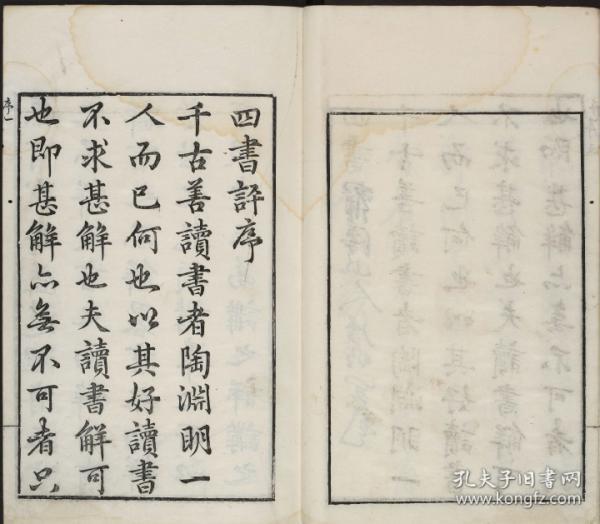 四書評序
千古善讀書者陶淵明一
人而已何也以其好讀書
不求甚解也夫讀書解可
也即甚解亦無不可者只
序一
孔夫子旧书网
www.kongfz.com